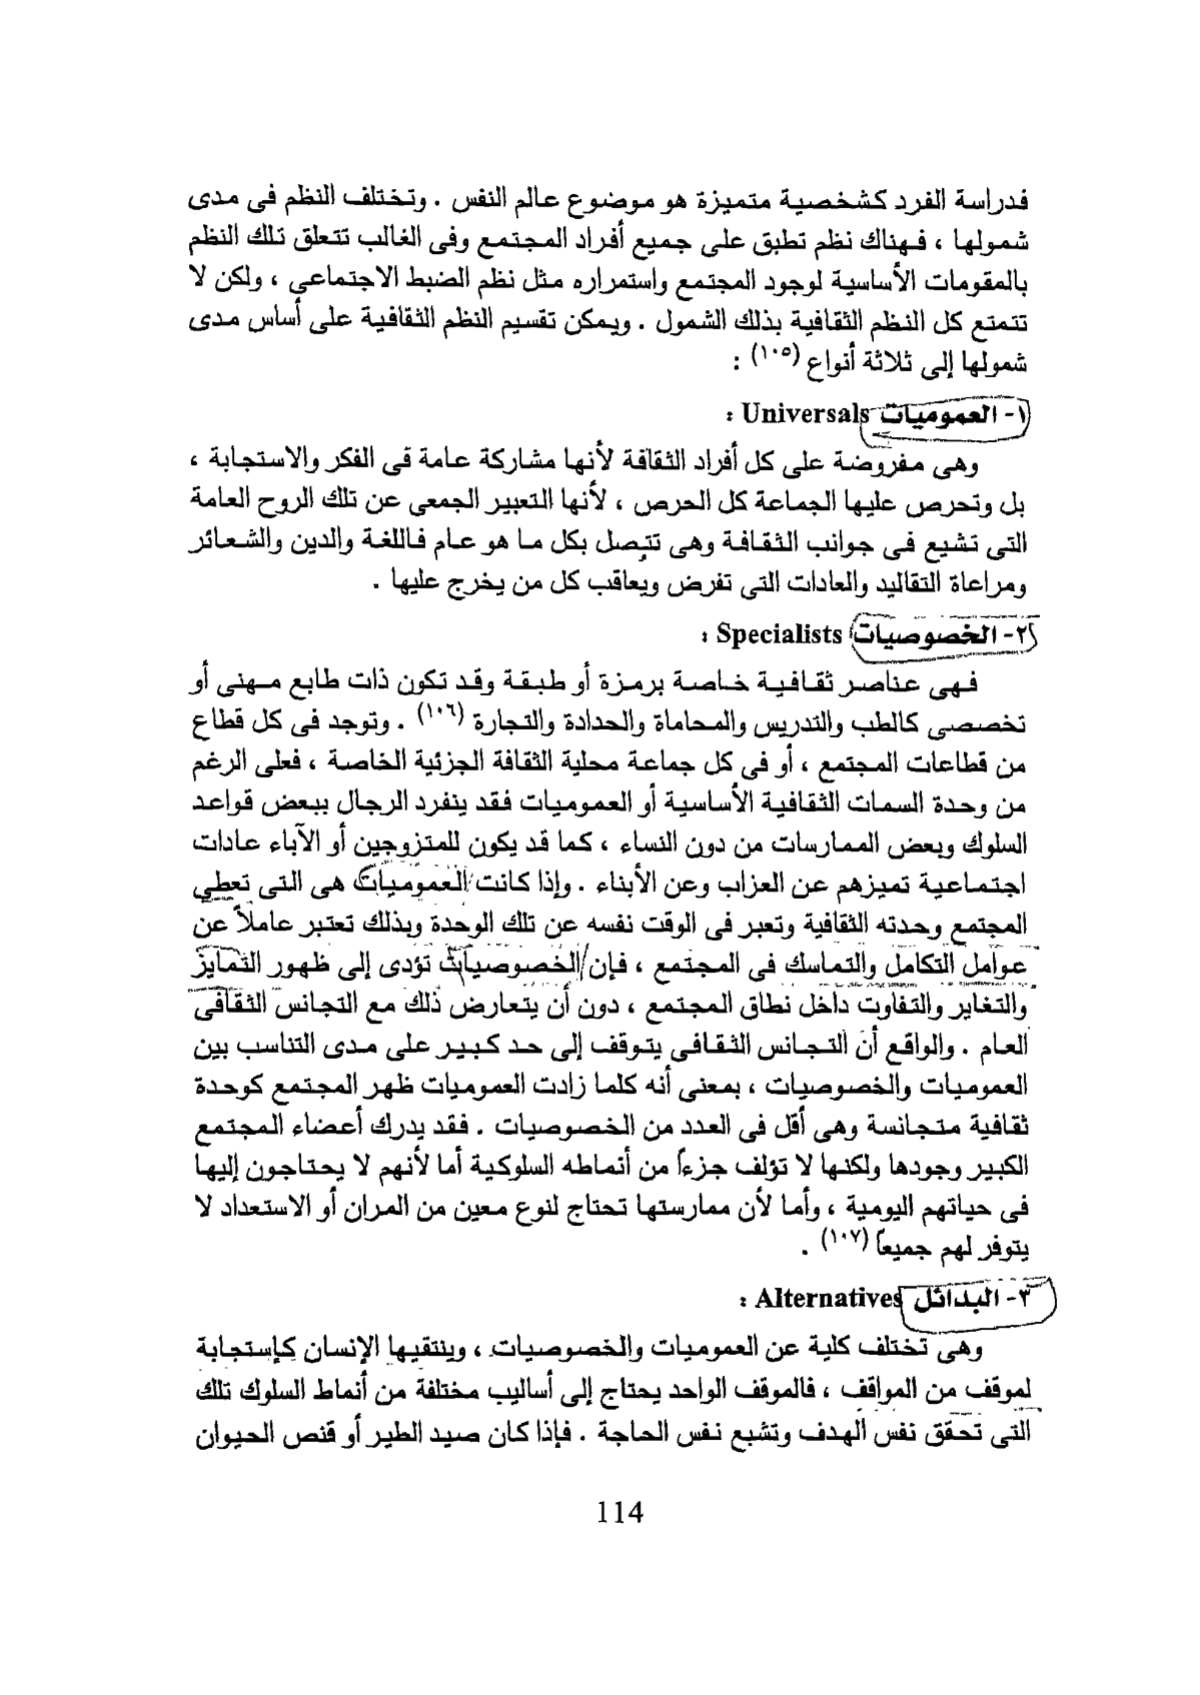 فدراسة الفرد كشخصية متميزة هو موضوع عالم النفس . وتختلف النظم فى مدى
شمولها ، فهناك نظم تطبق على جميع أفراد المجتمع وفى الغالب تتعلق تلك النظم
بالمقومات الأساسية لوجود المجتمع واستمراره مثل نظم الضبط الاجتماعى ، ولكن لا
تتمتع كل النظم الثقافية بذلك الشمول . ويمكن تقسيم النظم الثقافية على أساس مدى
شمولها إلى ثلاثة أنواع (١٠٥) :
١- العموميات Universals :
وهى مفروضة على كل أفراد الثقافة لأنها مشاركة عامة فى الفكر والاستجابة ،
بل وتحرص عليها الجماعة كل الحرص ، لأنها التعبير الجمعى عن تلك الروح العامة
التى تشيع فى جوانب الثقافة وهى تتصل بكل ما هو عام فاللغة والدين والشعائر
ومراعاة التقاليد والعادات التى تفرض ويعاقب كل من يخرج عليها .
٢- الخصوصيات Specialists :
فهى عناصر ثقافية خاصة برمزة أو طبقة وقد تكون ذات طابع مهنى أو
تخصصى كالطب والتدريس والمحاماة والحدادة والتجارة (١٠٦) . وتوجد فى كل قطاع
من قطاعات المجتمع ، أو فى كل جماعة محلية الثقافة الجزئية الخاصة ، فعلى الرغم
من وحدة السمات الثقافية الأساسية أو العموميات فقد ينفرد الرجال ببعض قواعد
السلوك وبعض الممارسات من دون النساء ، كما قد يكون للمتزوجين أو الآباء عادات
اجتماعية تميزهم عن العزاب وعن الأبناء . وإذا كانت العموميات هى التى تعطى
المجتمع وحدته الثقافية وتعبر فى الوقت نفسه عن تلك الوحدة وبذلك تعتبر عاملاً عن
عوامل التكامل والتماسك فى المجتمع ، فإن الخصوصيات تؤدى إلى ظهور التمايز
والتغاير والتفاوت داخل نطاق المجتمع ، دون أن يتعارض ذلك مع التجانس الثقافى
العام . والواقع أن التجانس الثقافى يتوقف إلى حد كبير على مدى التناسب بين
العموميات والخصوصيات ، بمعنى أنه كلما زادت العموميات ظهر المجتمع كوحدة
ثقافية متجانسة وهى أقل فى العدد من الخصوصيات . فقد يدرك أعضاء المجتمع
الكبير وجودها ولكنها لا تؤلف جزءاً من أنماطه السلوكية أما لأنهم لا يحتاجون إليها
فى حياتهم اليومية ، وأما لأن ممارستها تحتاج لنوع معين من المران أو الاستعداد لا
يتوفر لهم جميعاً (١٠٧) .
٣- البدائل Alternatives :
وهى تختلف كلية عن العموميات والخصوصيات ، وينتقيها الإنسان كإستجابة
لموقف من المواقف ، فالموقف الواحد يحتاج إلى أساليب مختلفة من أنماط السلوك تلك
التى تحقق نفس الهدف وتشبع نفس الحاجة . فإذا كان صيد الطير أو قنص الحيوان
114